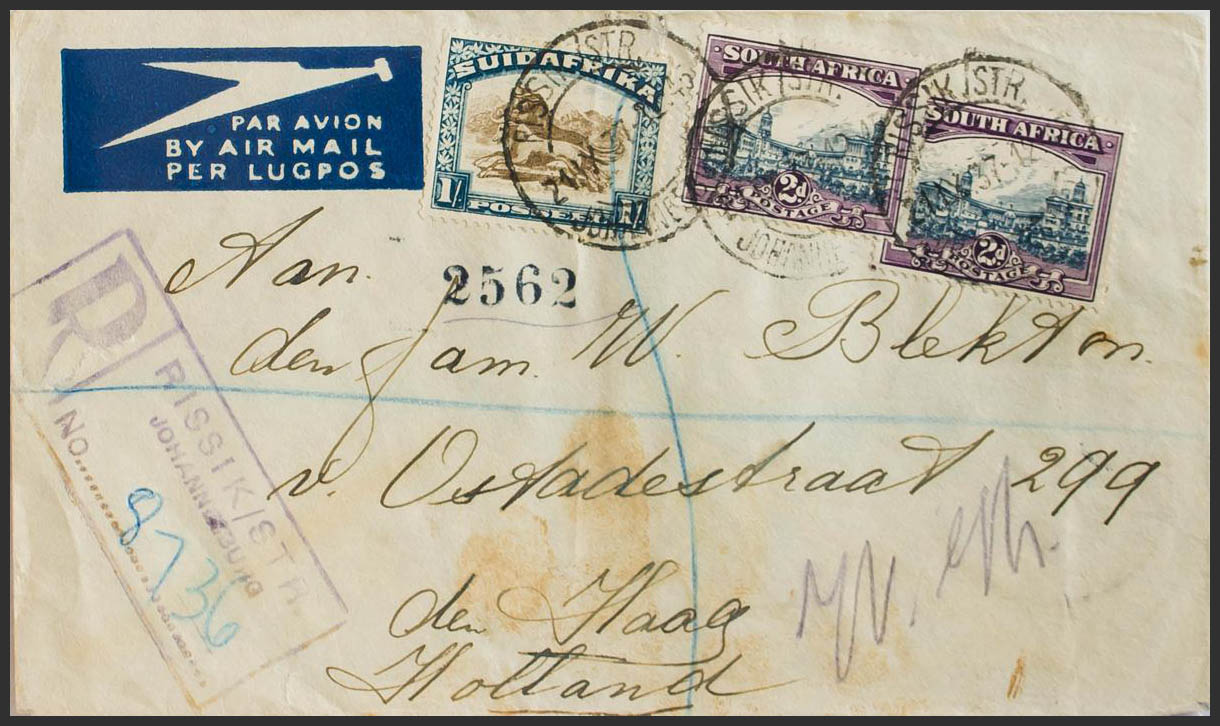 PAR AVION
BY AIR MAIL
PER LUGPOS
SUIDAFRIKA
1/
POSSEEL
SOUTH AFRICA
2d
POSTAGE
SOUTH AFRICA
2d
POSTAGE
2562
Aan
den fam. W. Blekton.
v. Ostadestraat 299
den Haag
Holland
R
RISSIK/STR.
JOHANNESBURG
NO.
9736